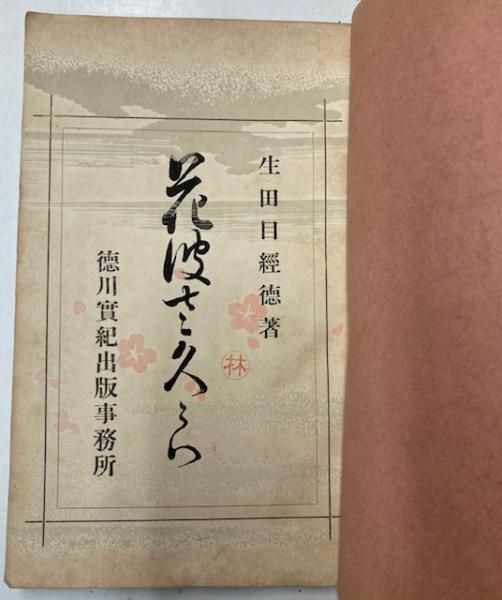 生田目經德著
花波さ久ら
德川實紀出版事務所
林